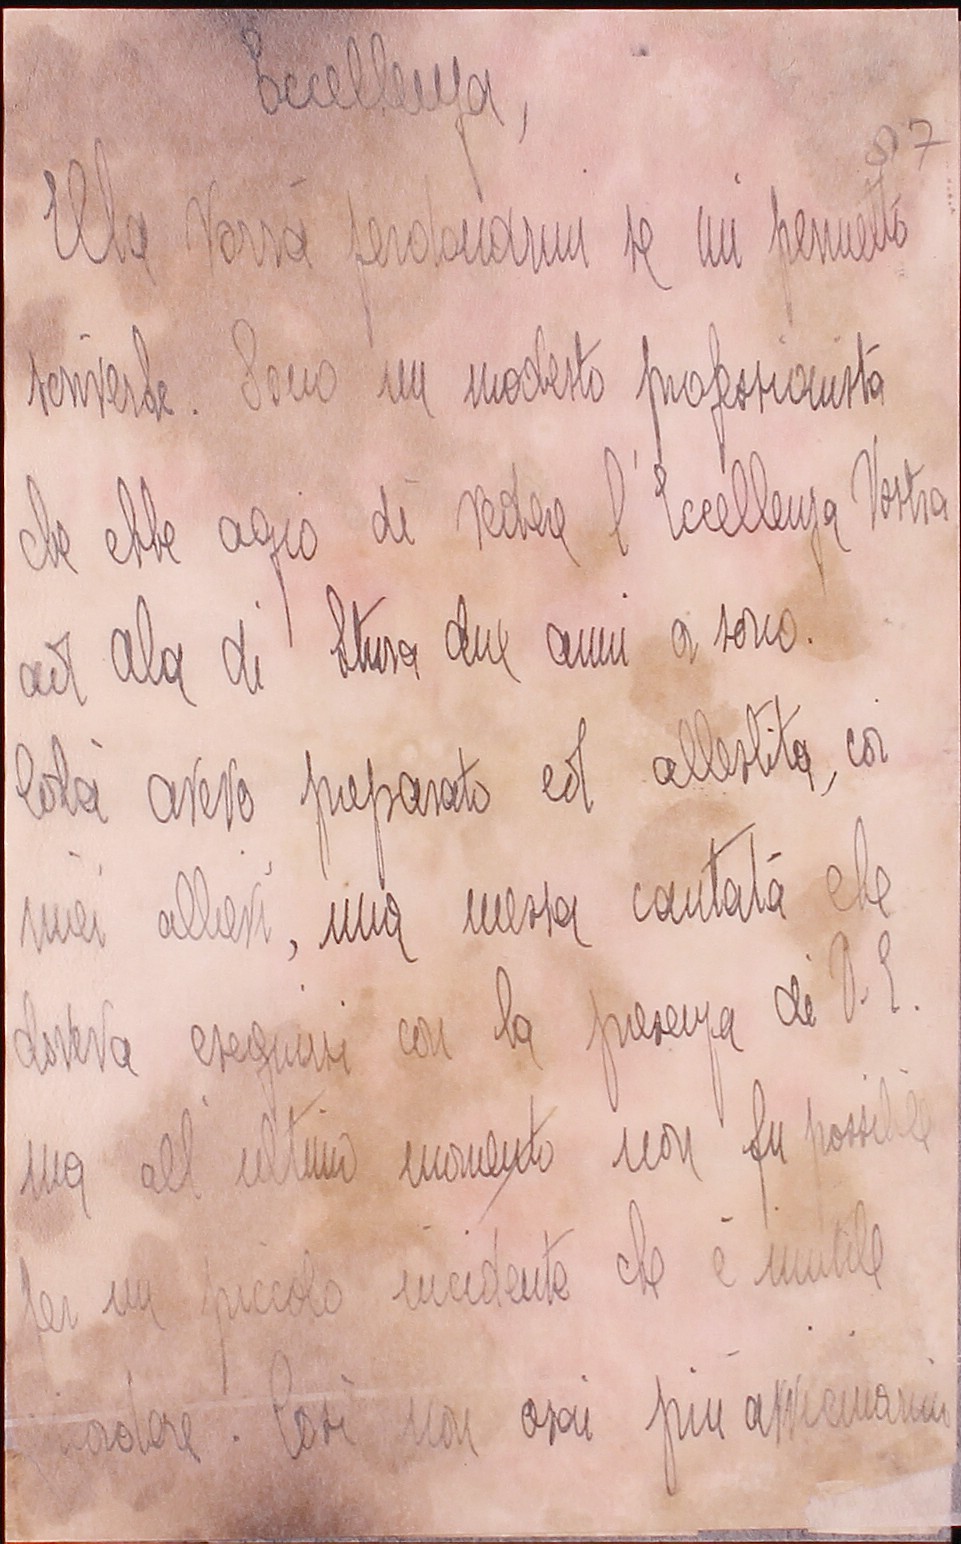 Eccellenza,
87
Ella vorrà perdonarmi se mi permetto
scriverle. Sono un modesto professionista
che ebbe agio di vedere l'Eccellenza Vostra
ad Ala di Stura due anni or sono.
Colà avevo preparato ed allestita, coi
miei allievi, una messa cantata che
doveva eseguirsi con la presenza di V. E.
ma all'ultimo momento non fu possibile
per un piccolo incidente che è inutile
ricordare. Così non osai più avvicinarmi